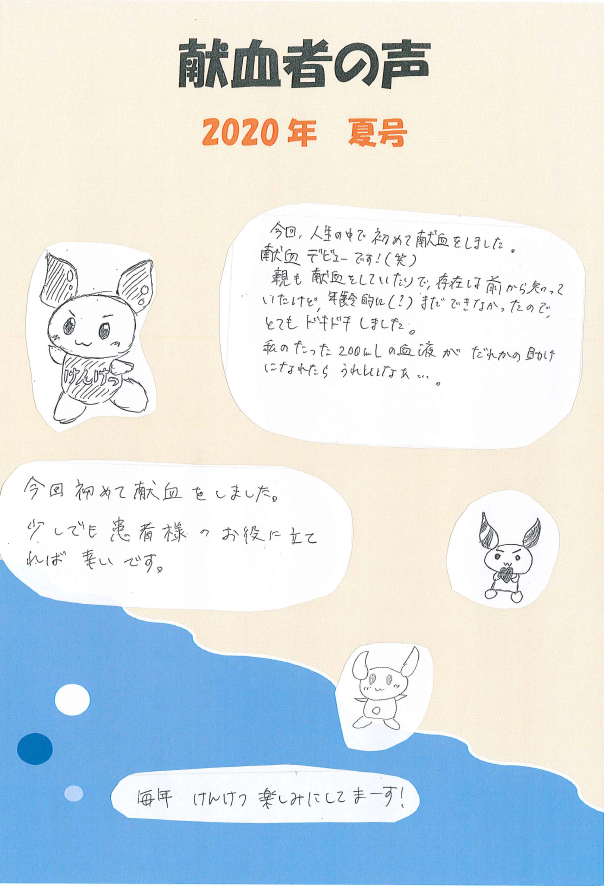 献血者の声
2020年 夏号
今回、人生の中で初めて献血をしました。
献血デビューです！(笑)
親も献血をしていたりで、存在は前から知って
いたけど、年齢的に(！)まだできなかったので、
とてもドキドキしました。
私のたった200mLの血液がだれかの助け
になれたらうれしいなぁ…。
けんけつ
今回初めて献血をしました。
少しでも患者様のお役に立て
れば幸いです。
毎年 けんけつ楽しみにしてまーす！